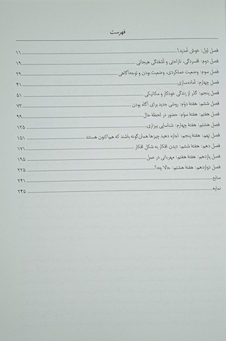 فهرست
فصل اول: خوش آمدید! ۱۱
فصل دوم: افسردگی، ناراحتی و آشفتگی هیجانی ۱۹
فصل سوم: وضعیت عملکردی، وضعیت بودن و توجه‌آگاهی ۲۹
فصل چهارم: آماده‌سازی ۴۱
فصل پنجم: گذر از زندگی خودکار و مکانیکی ۵۱
فصل ششم: هفتهٔ دوم: روشی جدید برای آگاه بودن ۷۷
فصل هفتم: هفتهٔ سوم: حضور در لحظهٔ حال ۹۹
فصل هشتم: هفتهٔ چهارم: شناسایی بیزاری ۱۲۵
فصل نهم: هفتهٔ پنجم: اجازه دهید چیزها همان‌گونه باشند که هم‌اکنون هستند ۱۵۱
فصل دهم: هفتهٔ ششم: دیدن افکار به شکل افکار ۱۷۱
فصل یازدهم: هفتهٔ هفتم: مهربانی در عمل ۱۹۵
فصل دوازدهم: هفتهٔ هشتم: حالا چه؟ ۲۲۵
منابع ۲۴۱
نمایه ۲۴۵